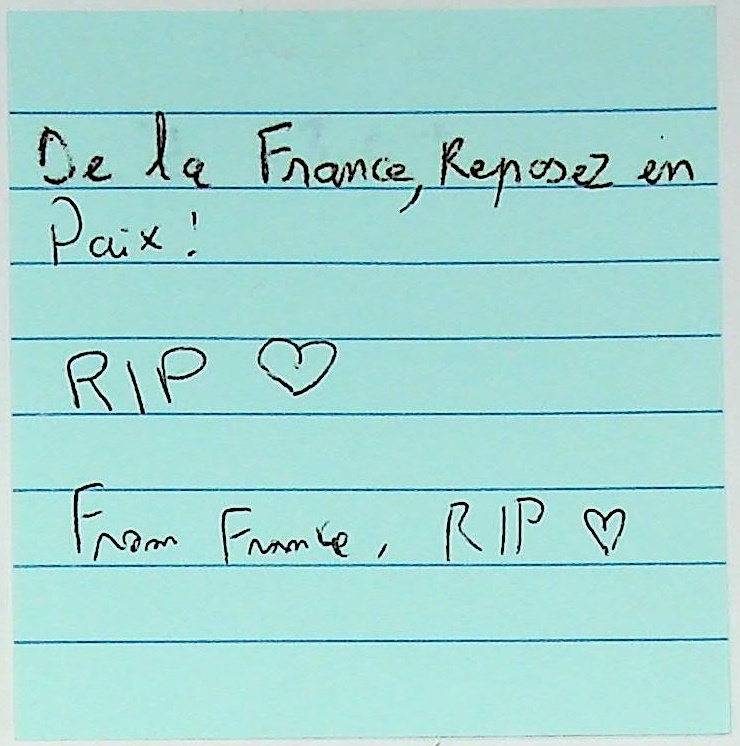 De la France, Reposez en
Paix!
RIP ♡
From France, RIP ♡